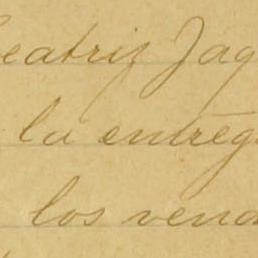 eatriz Jaq
la entreg
los vend